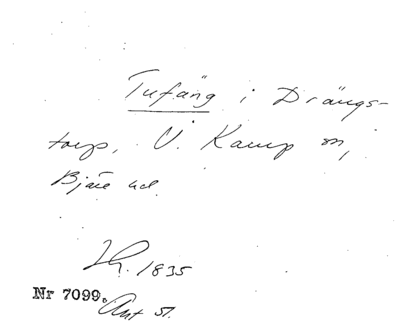 Tufäng i Drängs-
torp, V. Karup sn,
Bjäre hd.
Lh. 1835
Nr 7099.
Ant 51.